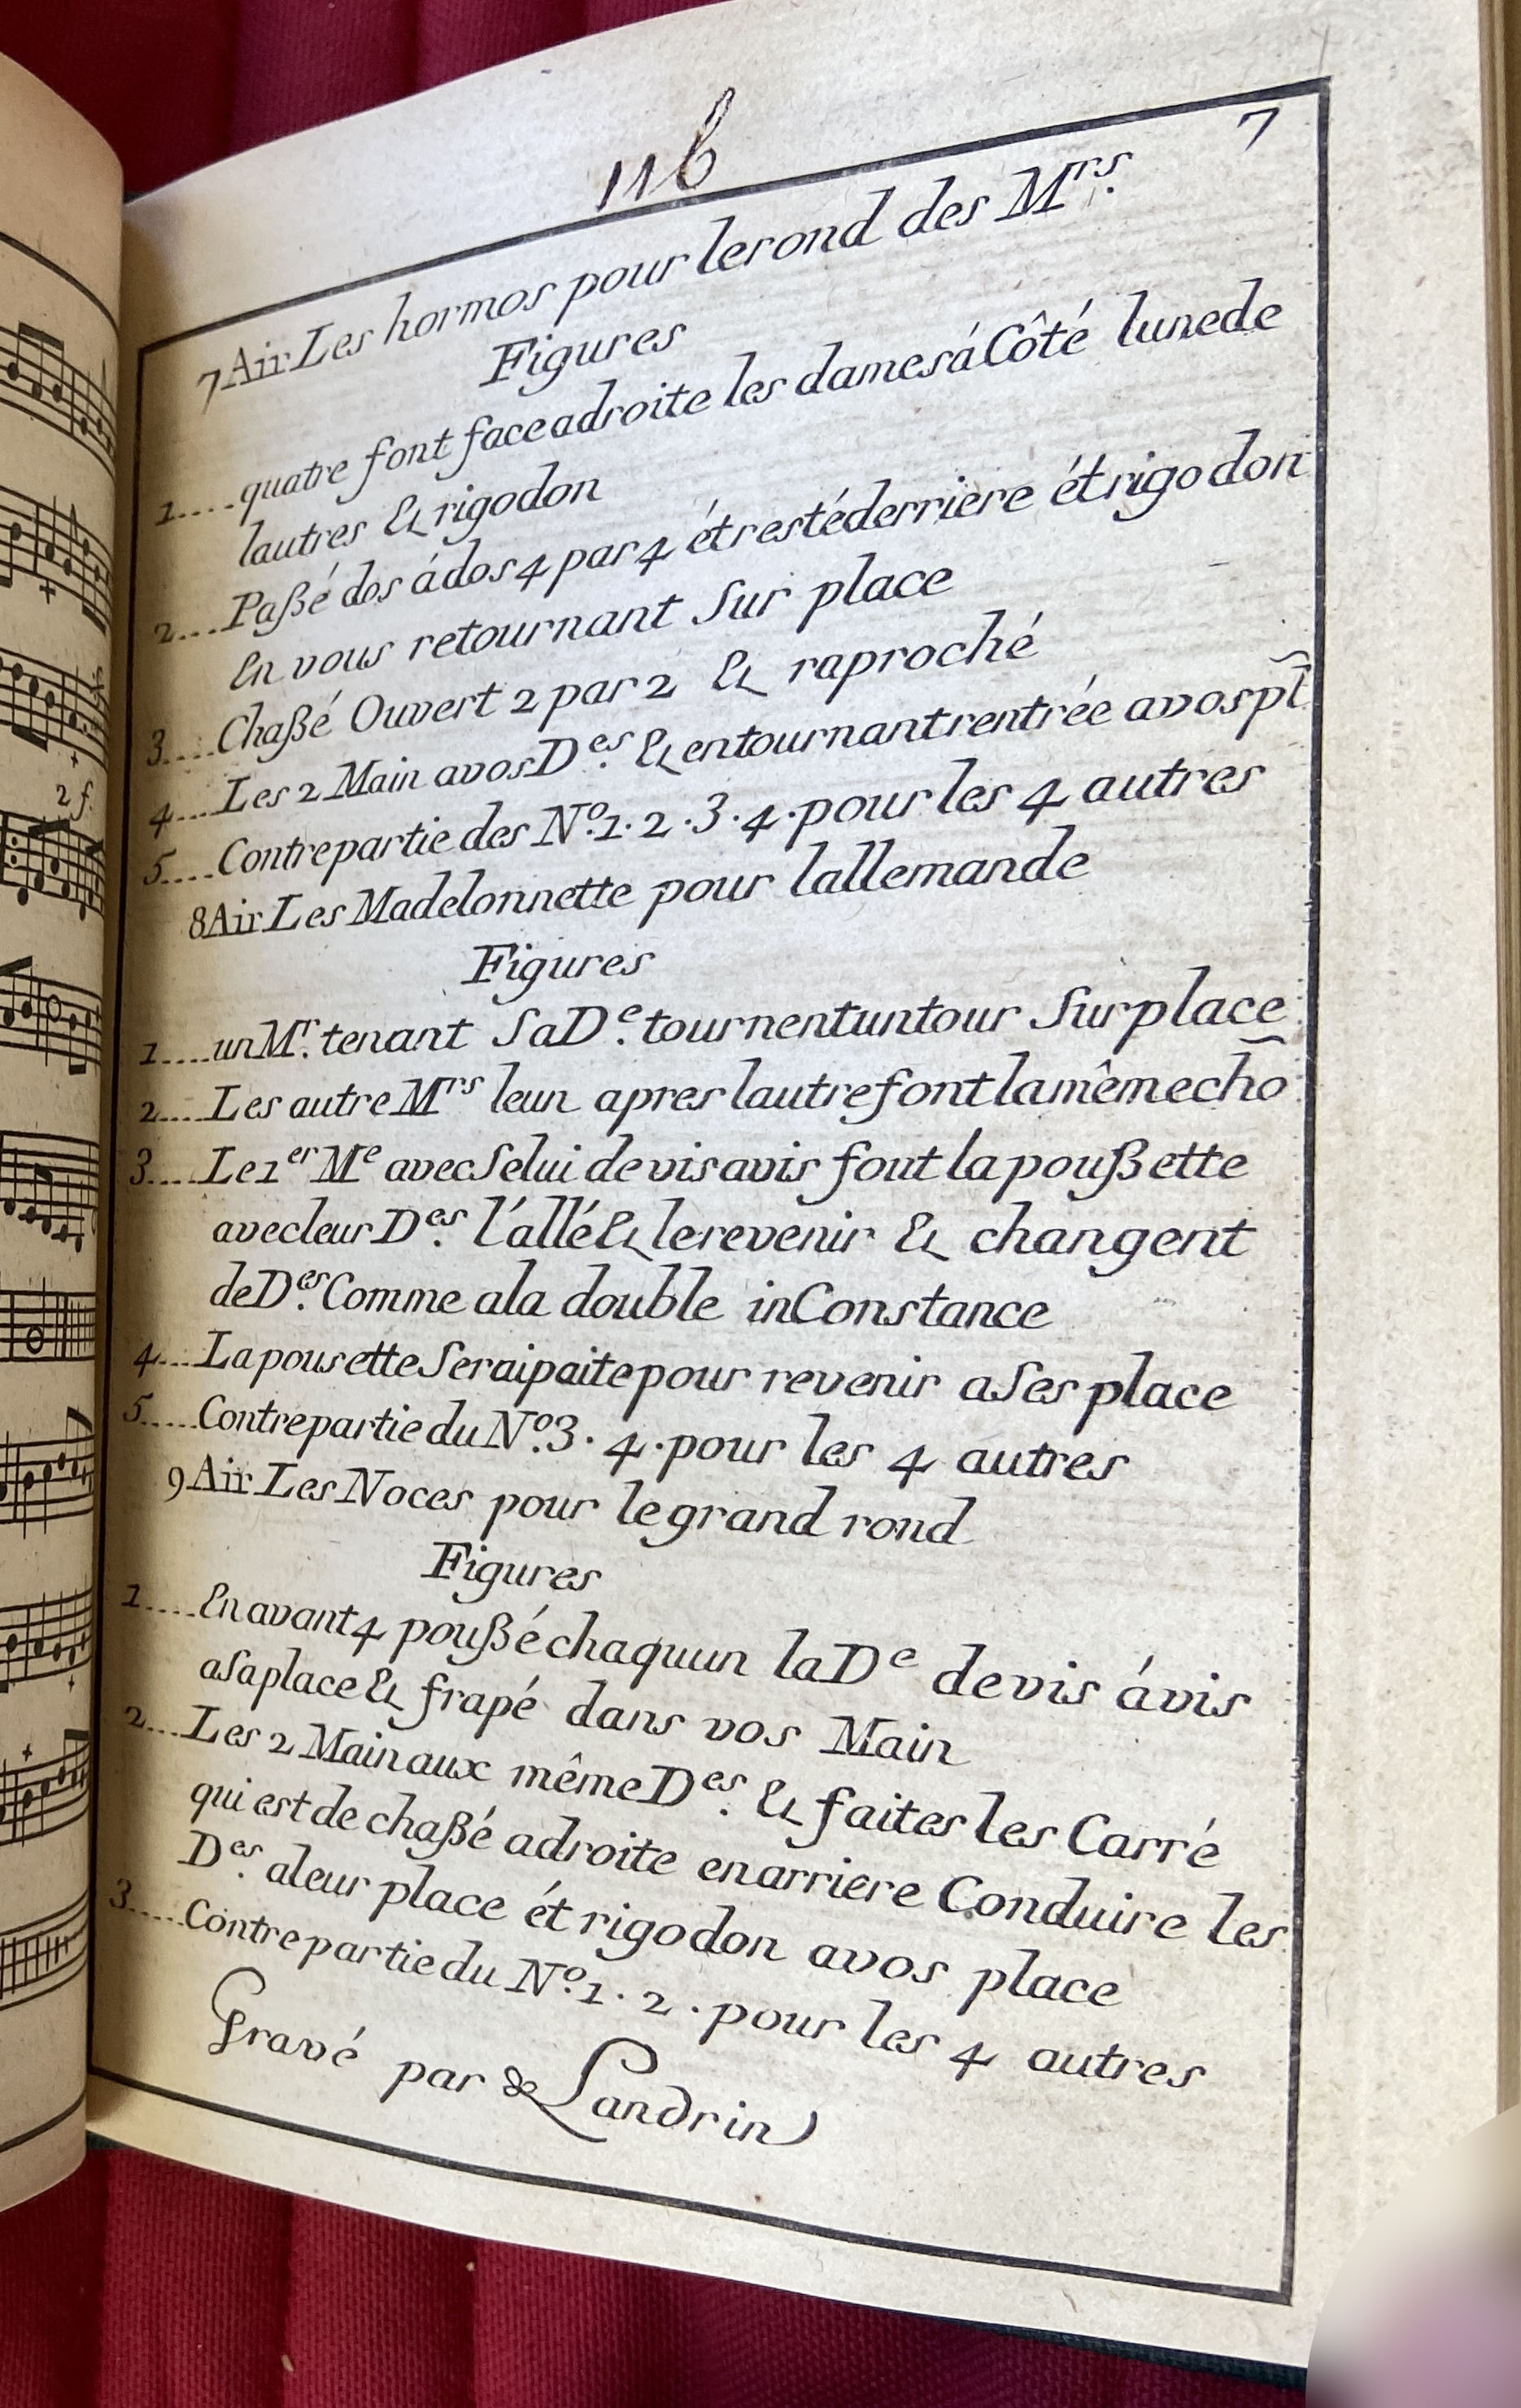 116
7
7 Air Les hormos pour lerond des Mrs.
Figures
1.... quatre font face adroite les damesá Côté lunede
lautres & rigodon
2.... Paßé dos ádos 4 par 4 étrestéderriere étrigodon
En vous retournant Sur place
3.... Chaßé Ouvert 2 par 2 & raproché
4.... Les 2 Main avos Des. & entournantrentrée avospl̃
5.... Contrepartie des No. 1. 2. 3. 4. pour les 4 autres
8 Air Les Madelonnette pour lallemande
Figures
1.... un Mr. tenant Sa De. tournentuntour Surplace
2.... Les autre Mrs leun apres lautrefontlamêmecho͂
3.... Le 1er Me avec Selui devisavis font lapoußette
avecleur Des. l'allé & lerevenir & changent
de Des. Comme ala double inConstance
4.... LapousetteSeraipaitepour revenir aSes place
5.... Contrepartie du No. 3. 4. pour les 4 autres
9 Air Les Noces pour legrand rond
Figures
1.... En avant 4 poußé chaquun la De devis ávis
aSaplace & frapé dans vos Main
2.... Les 2 Main aux même Des. & faites les Carré
qui est de chaßé adroite enarriere Conduire les
Des. aleur place ét rigodon avos place
3.... Contrepartie du No. 1. 2. pour les 4 autres
Gravé par Landrin
2 f.